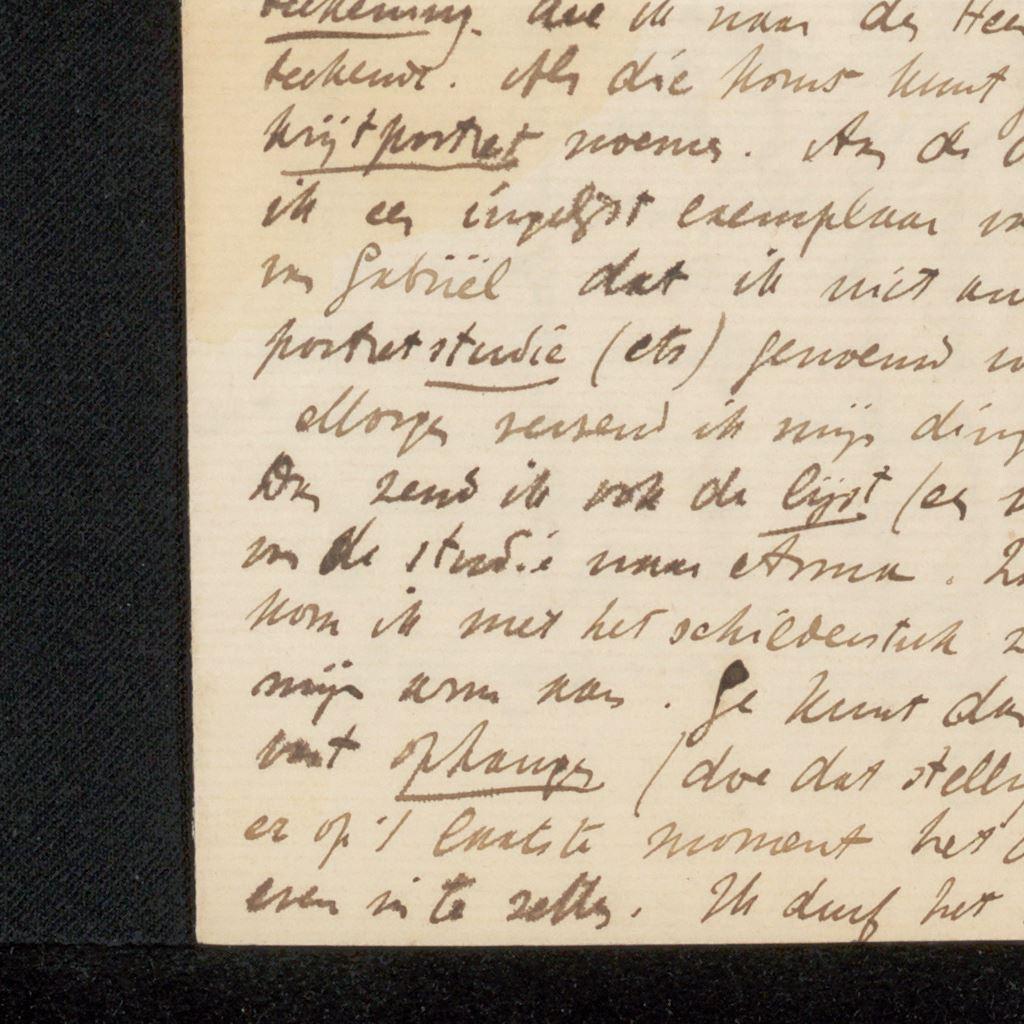 teekening. die ik naar de Heer
teekende. Als die komt kunt
krijtportret noemen. Aan de
ik een ingelijst exemplaar
van Gabriël dat ik niet
portretstudie (ets) genoemd
Morgen verzend ik mijn
Dan zend ik ook de lijst (een
van de studie naar Arma.
kom ik met het schilderstuk
mijn arm aan. Ge kunt dan
vast ophangen (doe dat
er op 't laatste moment het
even in te zetten. Ik durf het